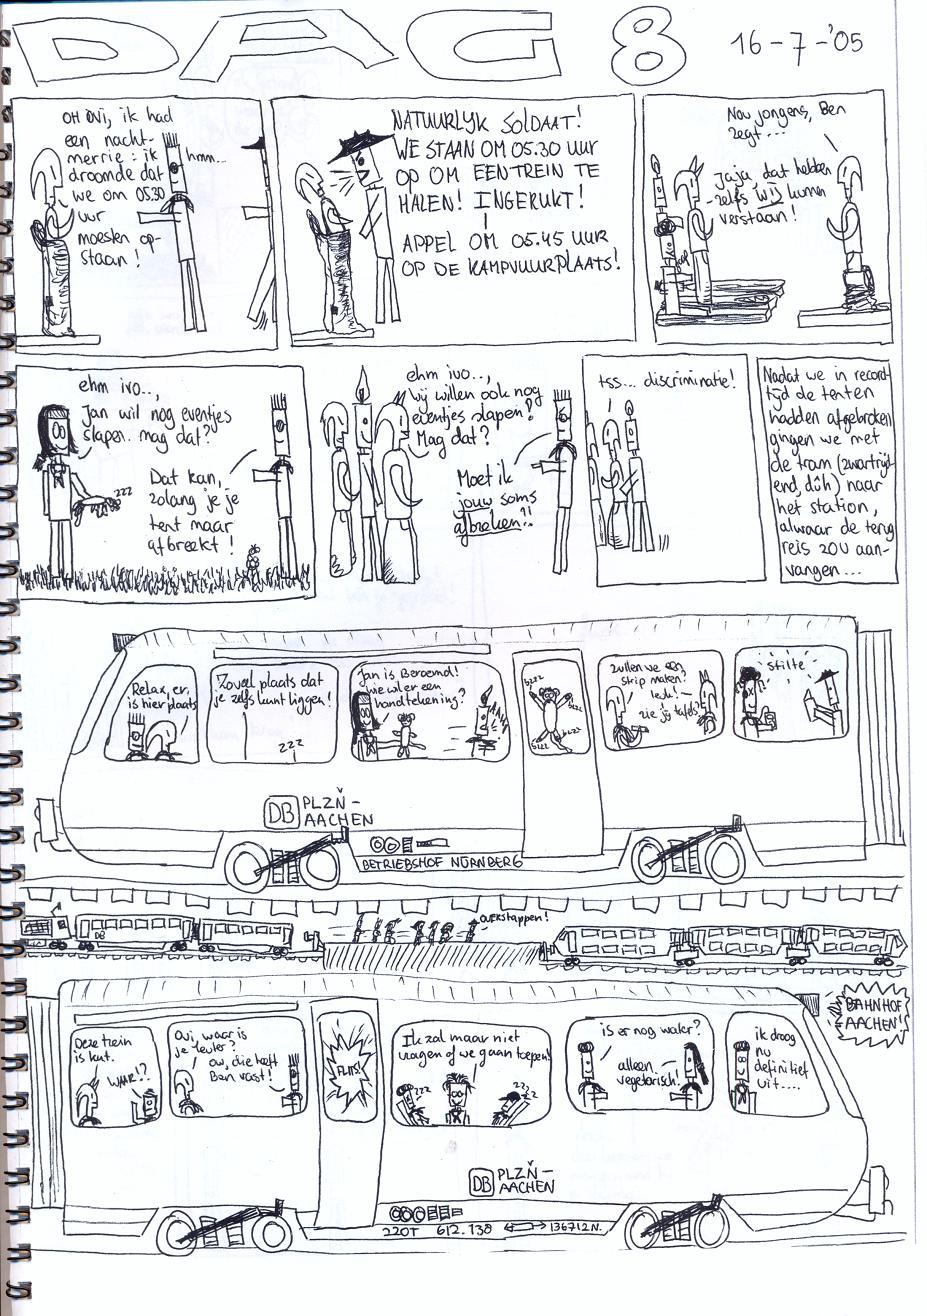 DAG 8
16-7-'05
OH OVI, ik had
een nacht-
merrie: ik
droomde dat
we om 05.30
uur
moesten op-
staan!
hmm...
NATUURLIJK SOLDAAT!
WE STAAN OM 05:30 UUR
OP OM EEN TREIN TE
HALEN! INGERUKT!
APPEL OM 05.45 UUR
OP DE KAMPVUURPLAATS!
Nou jongens, Ben
zegt...
jaja, dat hebben
zelfs wij kunnen
verstaan!
ehm ivo..,
Jan wil nog eventjes
slapen. mag dat?
zzz
Dat kan,
zolang je je
tent maar
afbreekt!
ehm ivo..,
wij willen ook nog
eventjes slapen?
Mag dat?
Moet ik
jouw soms
afbreken?!
tss... discriminatie!
Nadat we in record-
tijd de tenten
hadden afgebroken
gingen we met
de tram (zwartrijd-
end, dûh) naar
het station,
alwaar de terug
reis zou aan-
vangen...
Relax, er
is hier plaats
Zoveel plaats dat
je zelfs kunt liggen!
zzz
Jan is Beroemd!
wie wil er een
handtekening?
bzzz
bzzz
bzzz
bzzz
zullen we een
strip maken?
leuk!
zie jij tafels?
stilte
DB PLZŇ-
AACHEN
BETRIEBSHOF NÜRNBERG
OVERSTAPPEN!
DB
BAHNHOF
AACHEN!
Deze trein
is kut.
WAAR!?
Ovi, waar is
je leuter?
ow, die heeft
Ben vast!
FLITS!
Ik zal maar niet
vragen of we gaan toepen!
zzz
zzz
is er nog water?
alleen
vegetarisch!
ik droog
nu
definitief
uit....
DB PLZŇ-
AACHEN
220T 612.138 136712N.